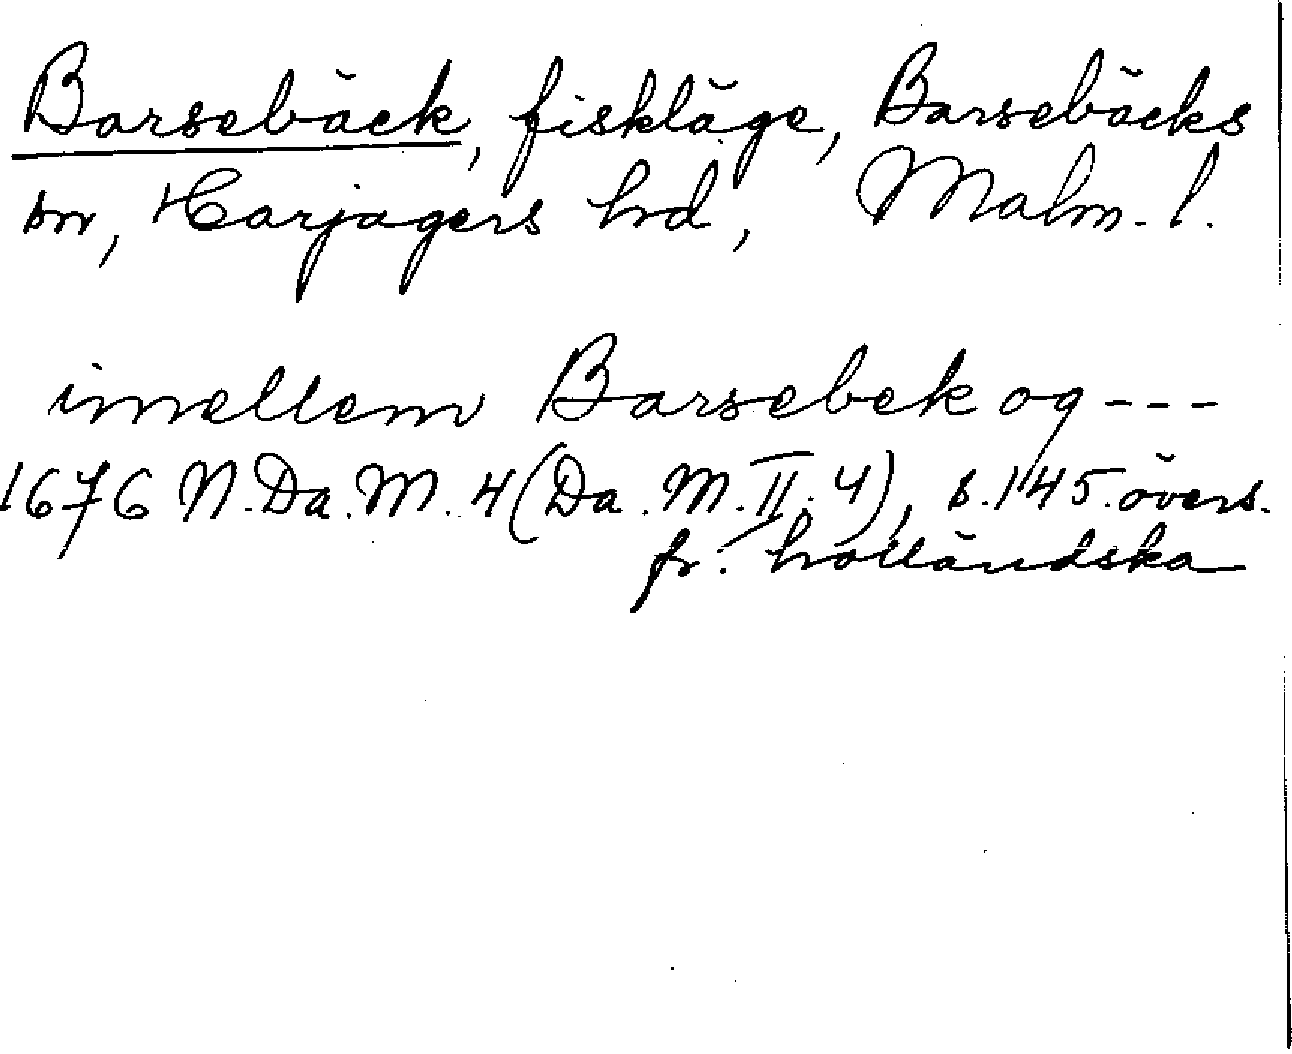 Barsebäck, fiskläge, Barsebäcks
sn, Harjagers hd, Malm. l.
imellem Barsebek og ---
1676 N.Da.M. 4 (Da.M.II.4), s. 145. övers.
fr. holländska